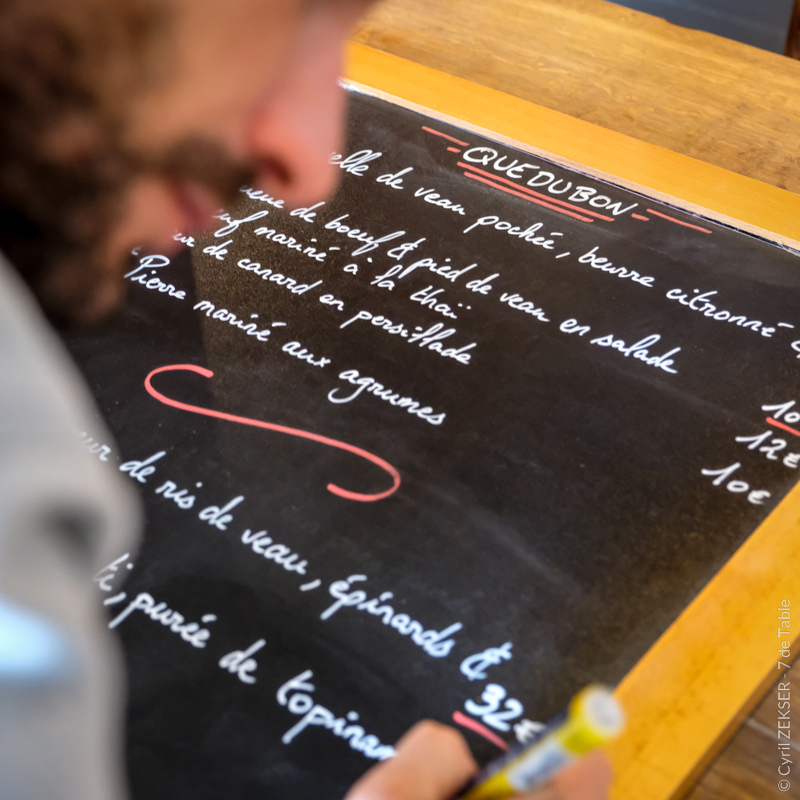 QUEDUBON
elle de veau pochée, beurre citronné
de bœuf & pied de veau en salade
mariné à la thaï
de canard en persillade
Pierre mariné aux agrumes
10
12€
10€
de ris de veau, épinards &
32€
purée de topinam
© Cyril ZEKSER - 7 de Table